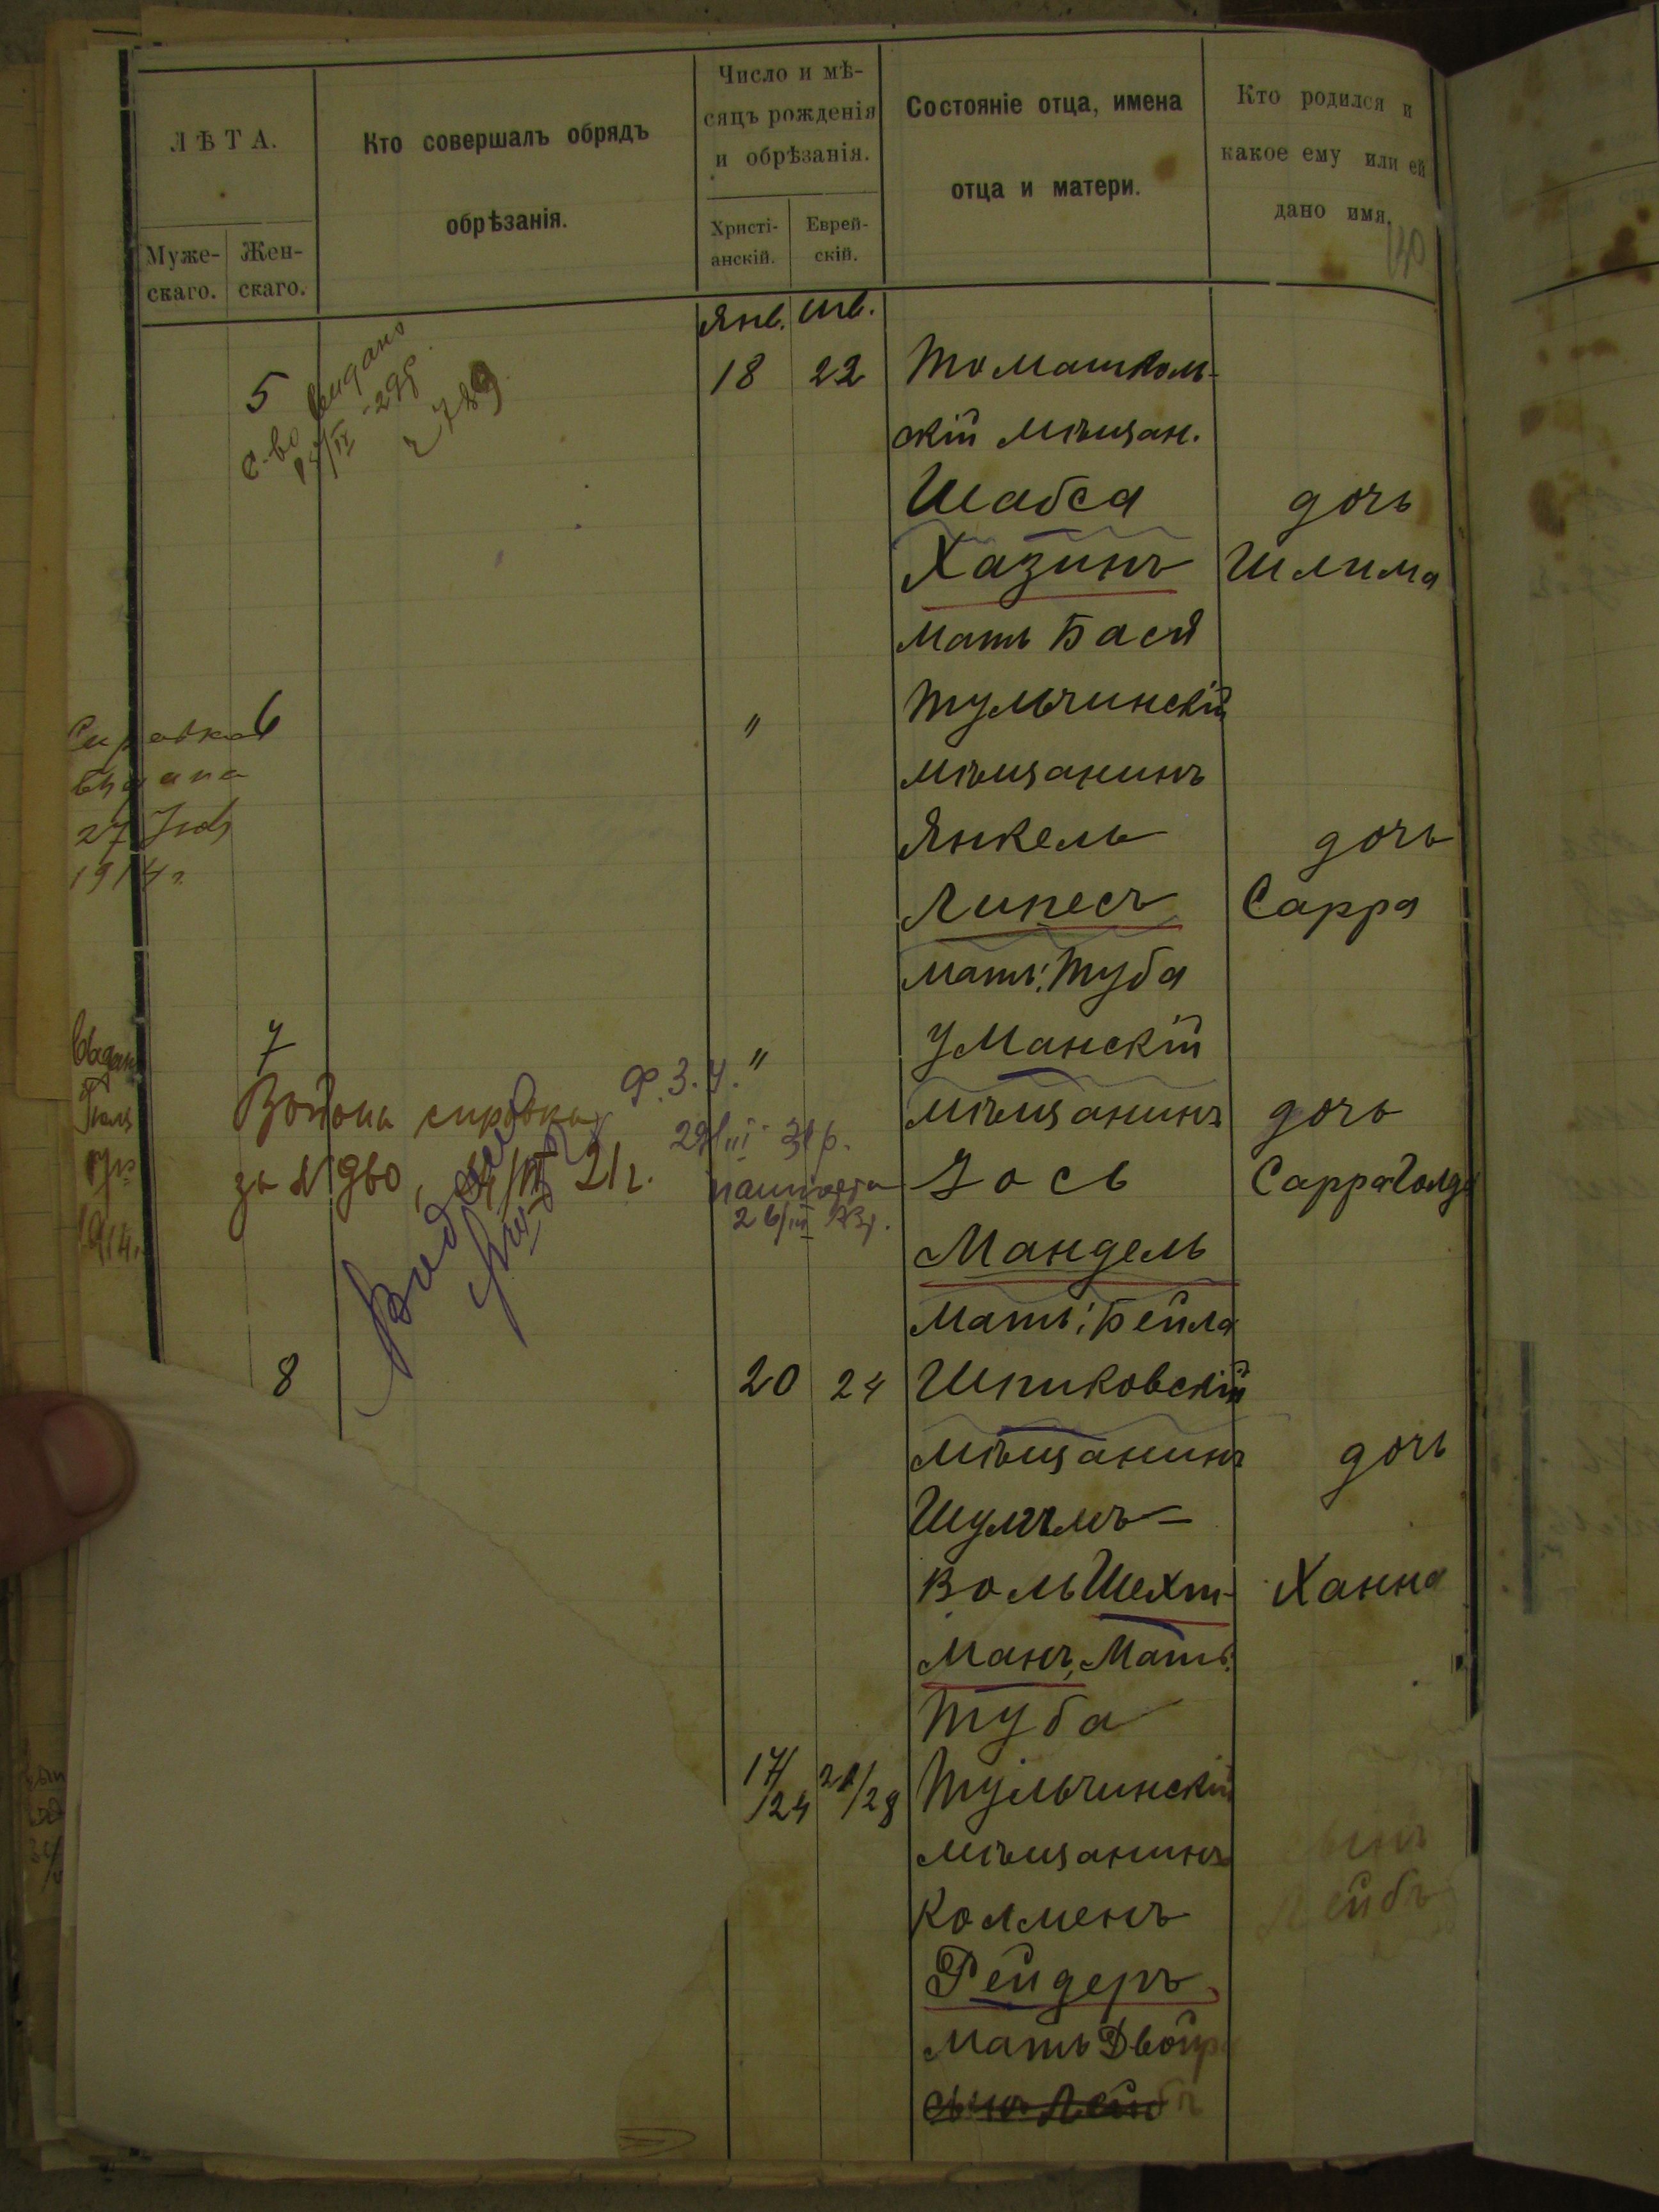 ЛѢТА.
Муже-
скаго.
Жен-
скаго.
Кто совершалъ обрядъ
обрѣзанія.
Число и мѣ-
сяцъ рожденія
и обрѣзанія.
Христі-
анскій.
Еврей-
скій.
Состояніе отца, имена
отца и матери.
Кто родился и
какое ему или ей
дано имя.
Янв. Шв.
5
с-во выдано
2789
18 22
Томашполь-
скій мѣщан.
Шабса
Хазинъ
мать Бася
дочь
Шлима
6
Справка
выдана
27
1914 г.
"
Тульчинскій
мѣщанинъ
Янкель
Липесъ
мать: Туба
дочь
Сарра
7
1914
за № 960, 21 г.
Ф. З. У.
паспорта
"
Уманскій
мѣщанинъ
Зось
Мандель
мать: Бейла
дочь
Сарра Голда
8
20 24
Шпиковскій
мѣщанинъ
Шулимъ-
Воль Шехт-
манъ, мать:
Туба
дочь
Ханна
17/24 21/28
Тульчинскій
мѣщанинъ
Колменъ
Рейдеръ,
мать Двойра
сынъ Лейбъ
сынъ
Лейбъ